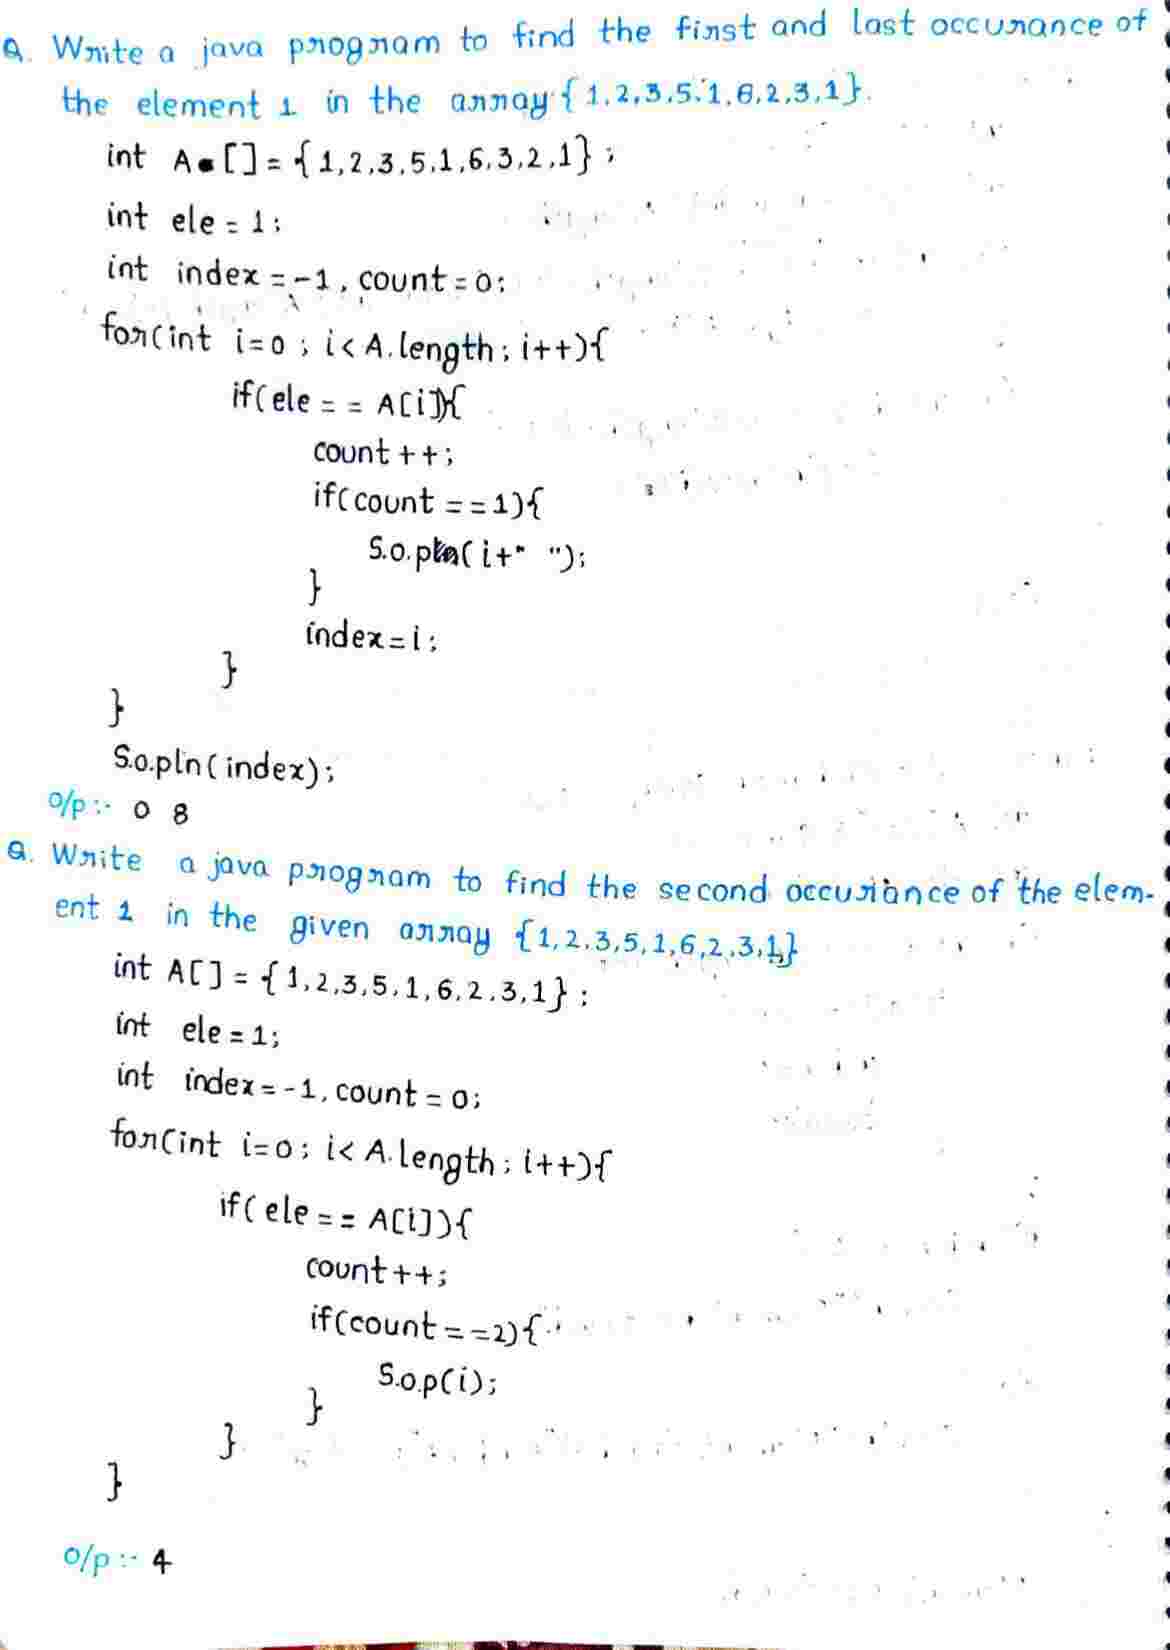 Q. Write a java program to find the first and last occurance of
the element 1 in the array {1,2,3,5,1,6,2,3,1}.
int A[] = {1,2,3,5,1,6,3,2,1};
int ele = 1;
int index = -1, count = 0;
for(int i=0; i< A.length; i++){
if(ele == A[i]){
count ++;
if(count ==1){
S.o.pln( i+" ");
}
index=i;
}
}
S.o.pln(index);
O/p :- 0 8
Q. Write a java program to find the second occurance of the elem-
ent 1 in the given array {1,2,3,5,1,6,2,3,1,}
int A[] = {1,2,3,5,1,6,2,3,1};
int ele = 1;
int index = -1, count = 0;
for(int i=0; i< A.length; i++){
if( ele == A[i]){
count++;
if(count ==2){
S.o.p(i);
}
}
}
O/p :- 4